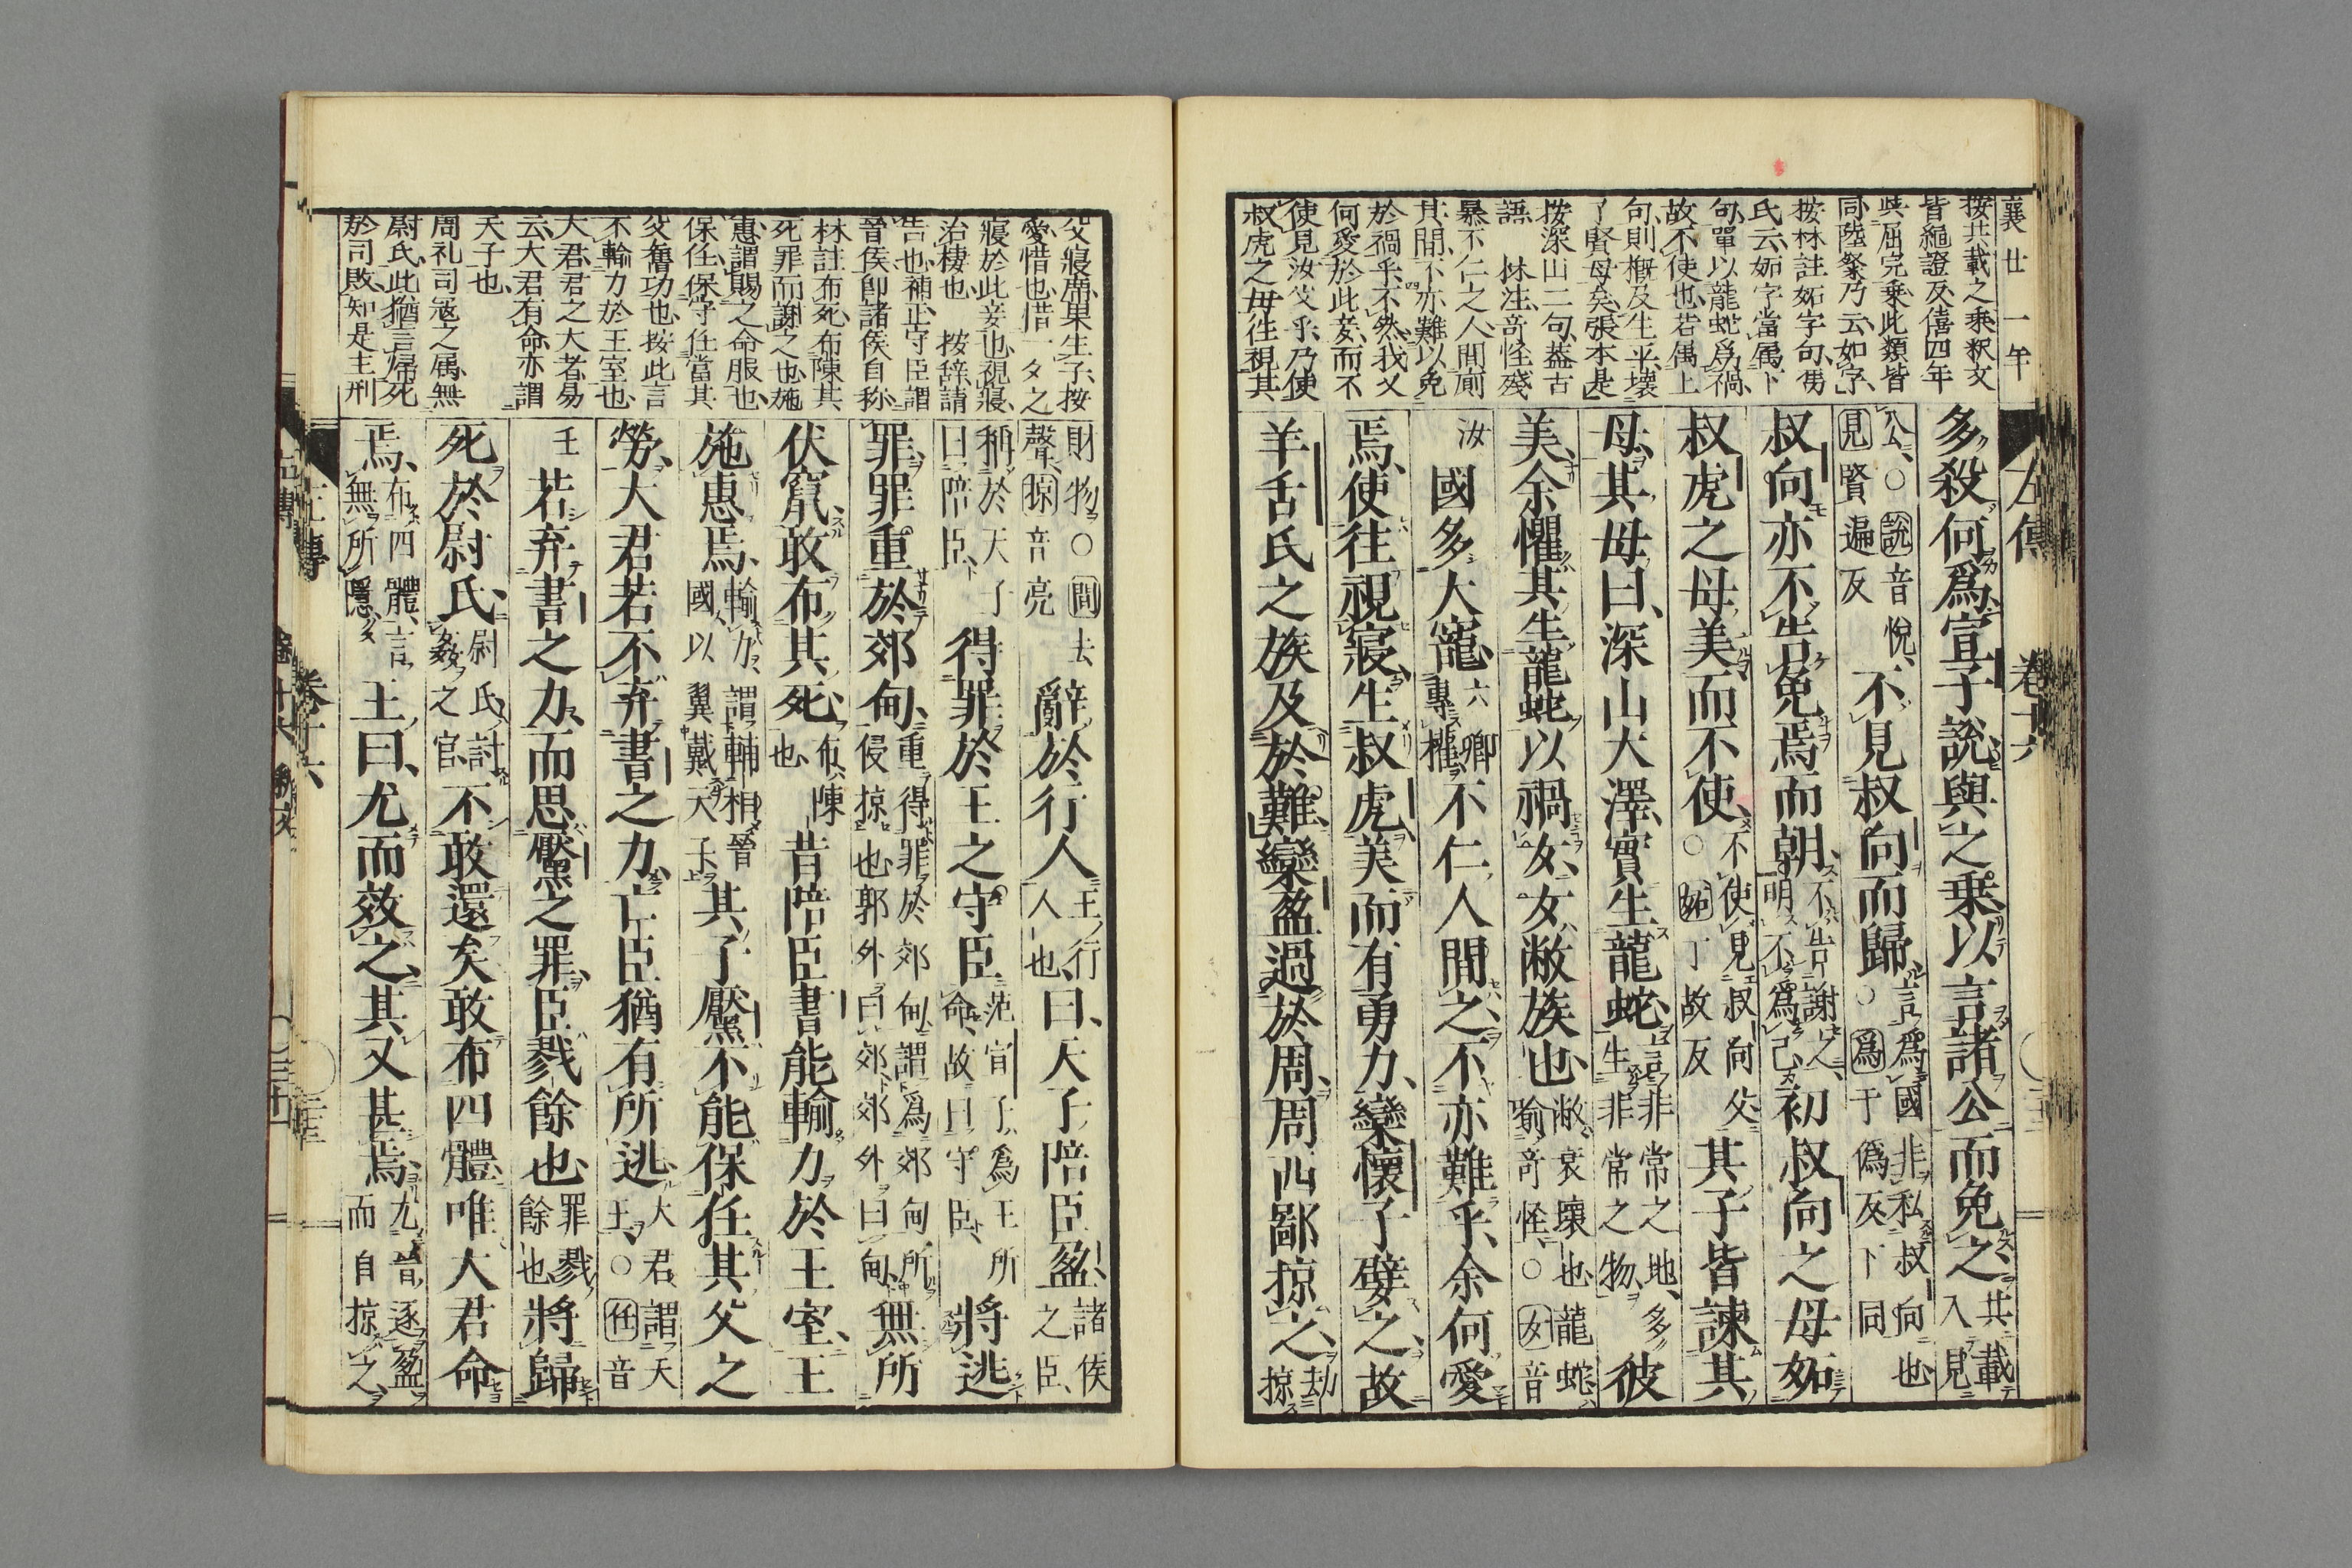 襄廿一年
按共載之乘釈文
皆繩證反僖四年
與屈完乗此類皆
同陸粲乃云如字
按林註妬字句馮
氏云妬字當属下
句單以龍蛇爲禍
故不使也若偶上
句則概及生平壊
了賢母矣張本是
按深山二句蓋古
語 林注竒怪殘
暴不仁之人間厠
其間不亦難以免
於禍乎不然我又
何愛於此妾而不
使見汝父乎乃使
叔虎之母往視其
左傳 卷十六
多殺何爲宣子說與之乗以言諸公而免之共載入見
公○說音悅見賢遍反不見叔向而歸言爲國非私叔向也○爲于僞反下同
叔向亦不告免焉而朝不告謝之明不爲己初叔向之母妬
叔虎之母美而不使不使見叔向父○妬丁故反其子皆諫其
母其母曰深山大澤實生龍蛇言非常之地多生非常之物彼
美余懼其生龍蛇以禍女女敝族也敝衰壞也龍蛇喻竒怪○女音
汝國多大寵六卿專權不仁人間之不亦難乎余何愛
焉使往視寢生叔虎美而有勇力欒懷子嬖之故
羊舌氏之族及於難欒盈過於周周西鄙掠之劫掠
父寢席果生子按
愛惜也惜一夕之
寢於此妾也視寢
治棲也 按辞請
告也補正守臣謂
晉侯卽諸侯自称
林註布死布陳其
死罪而謝之也施
惠謂賜之命服也
保任保守任當其
父舊功也按此言
不輸力於王室也
大君君之大者易
云大君有命亦謂
天子也
周礼司冦之属無
尉氏此猶言歸死
於司敗知是主刑
財物○間去聲掠音亮辭於行人王行人也曰天子陪臣盈諸侯之臣
稱於天子曰陪臣得罪於王之守臣范宣子爲王所命故曰守臣將逃
罪罪重於郊甸重得罪於郊甸謂爲郊甸所侵掠也郭外曰郊郊外曰甸無所
伏竄敢布其死布陳也昔陪臣書能輸力於王室王
施惠焉輸力謂輔相晉國以翼戴天子其子黶不能保任其父之
勞大君若不弃書之力亡臣猶有所逃大君謂天王○任音
壬若弃書之力而思黶之罪臣戮餘也罪戮餘也將歸
死於尉氏尉氏討姦之官不敢還矣敢布四體唯大君命
焉布四體言無所隱王曰尤而效之其又甚焉尤晉逐盈而自掠之
左傳 卷十六